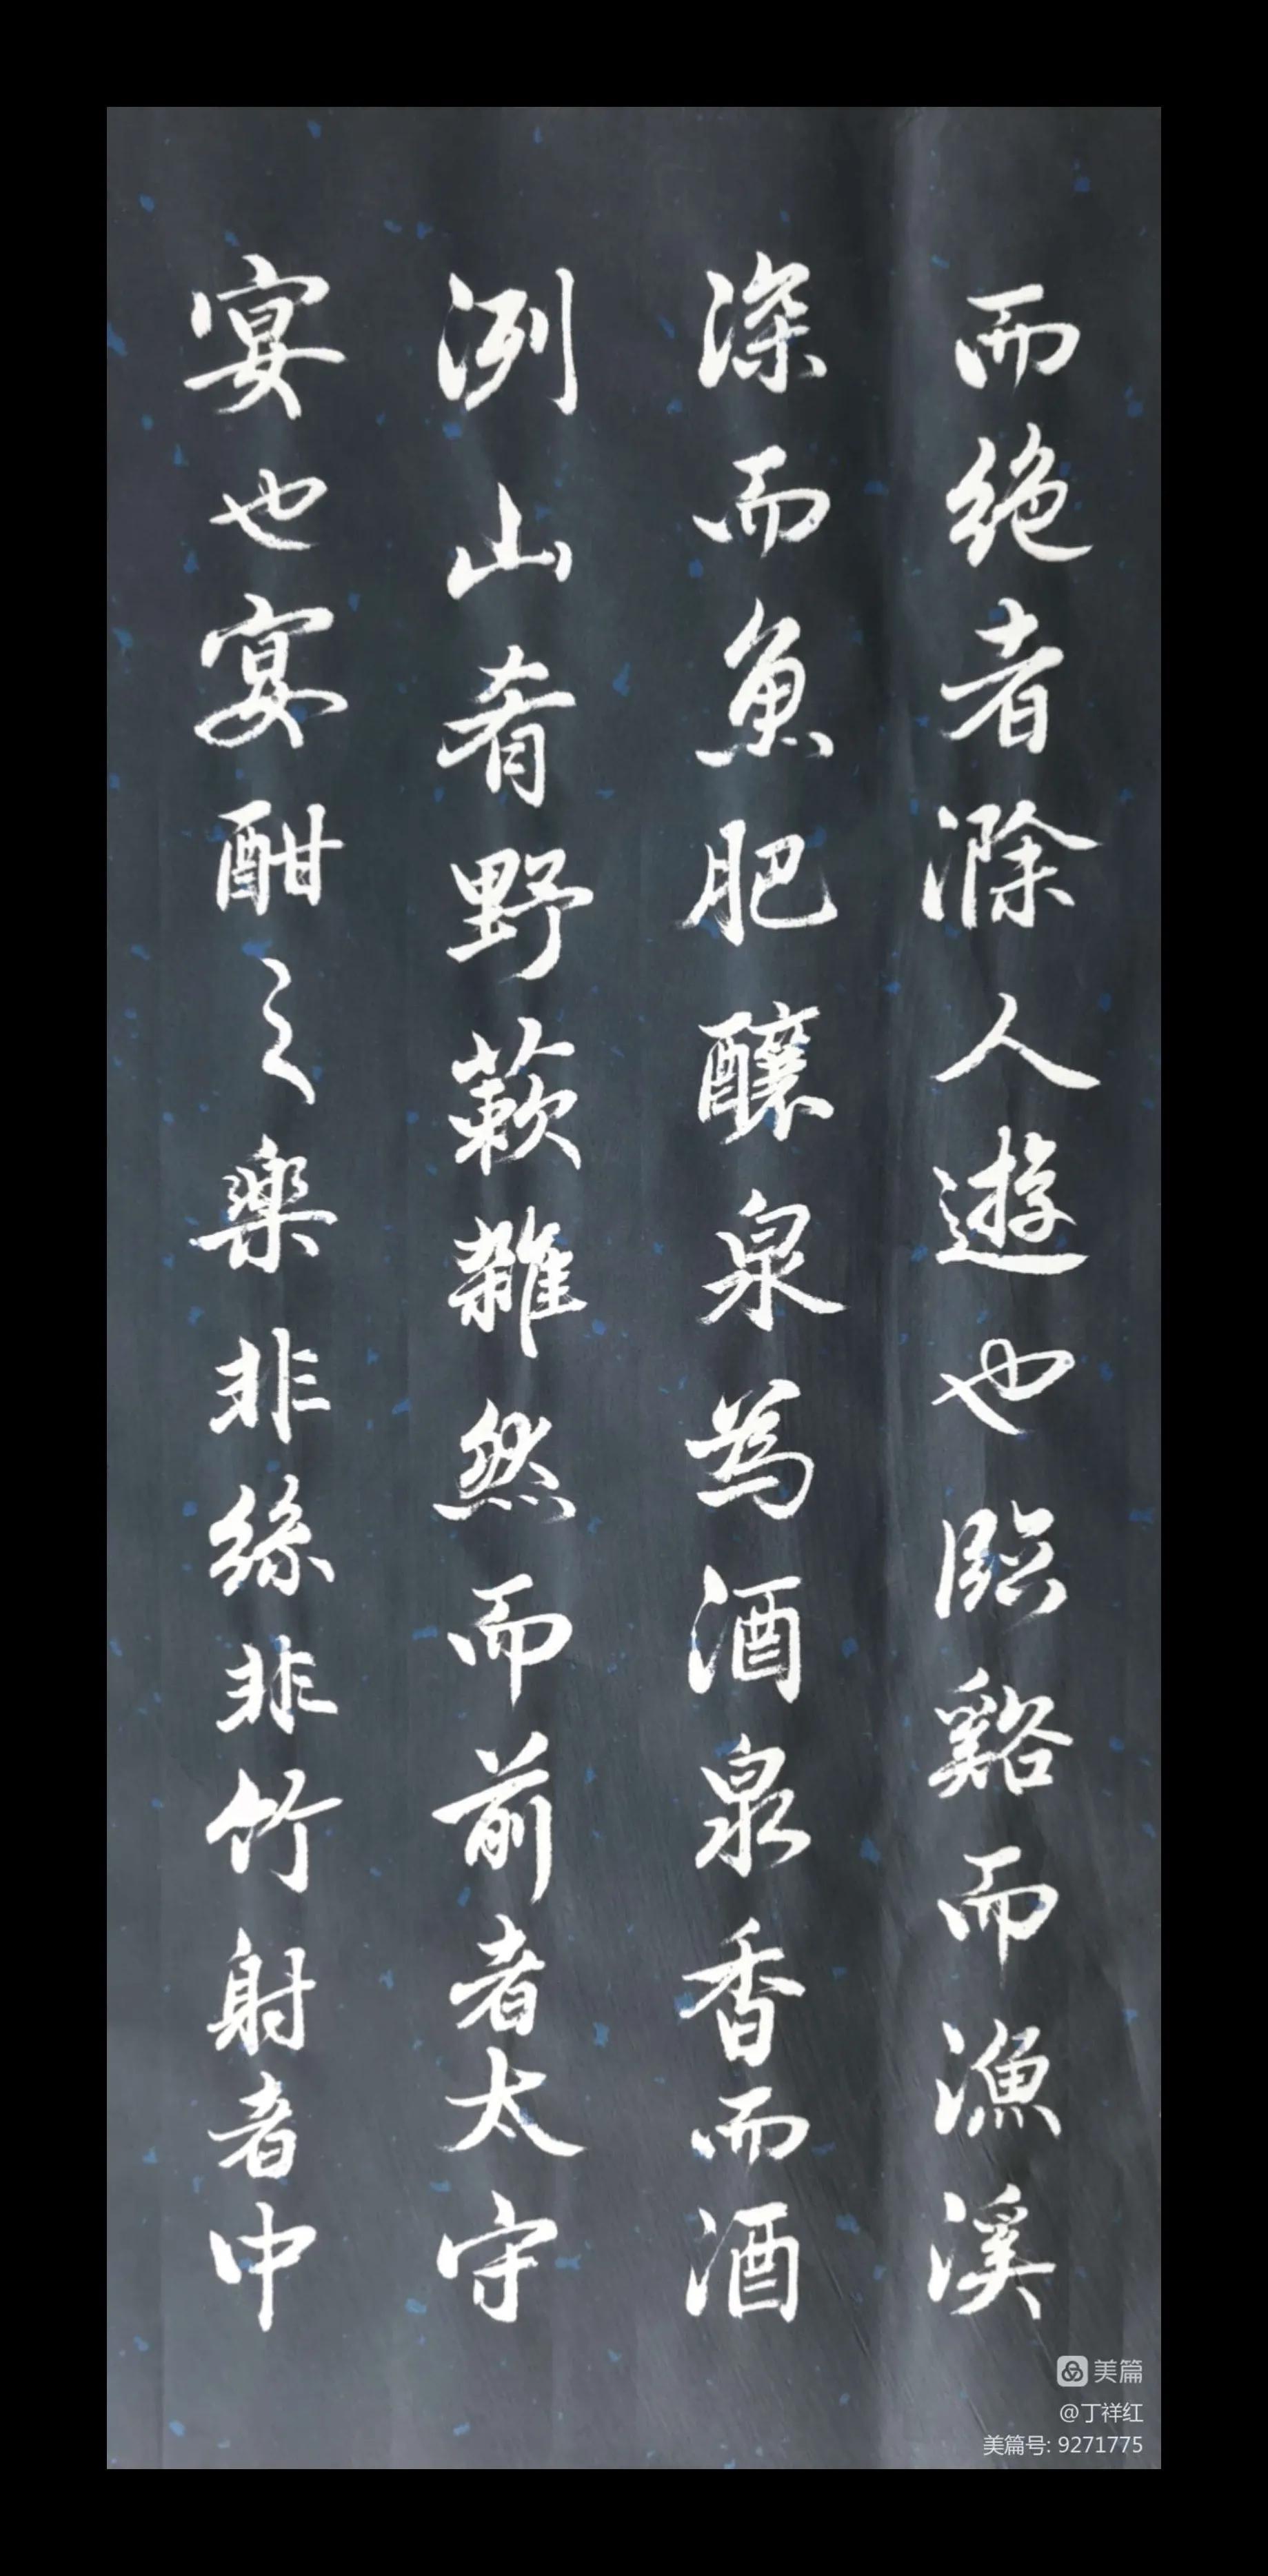 而绝者滁人遊也臨谿而漁溪
深而魚肥釀泉為酒泉香而酒
洌山肴野蔌雜然而前者太守
宴也宴酣之樂非絲非竹射者中
美篇
@丁祥红
美篇号: 9271775